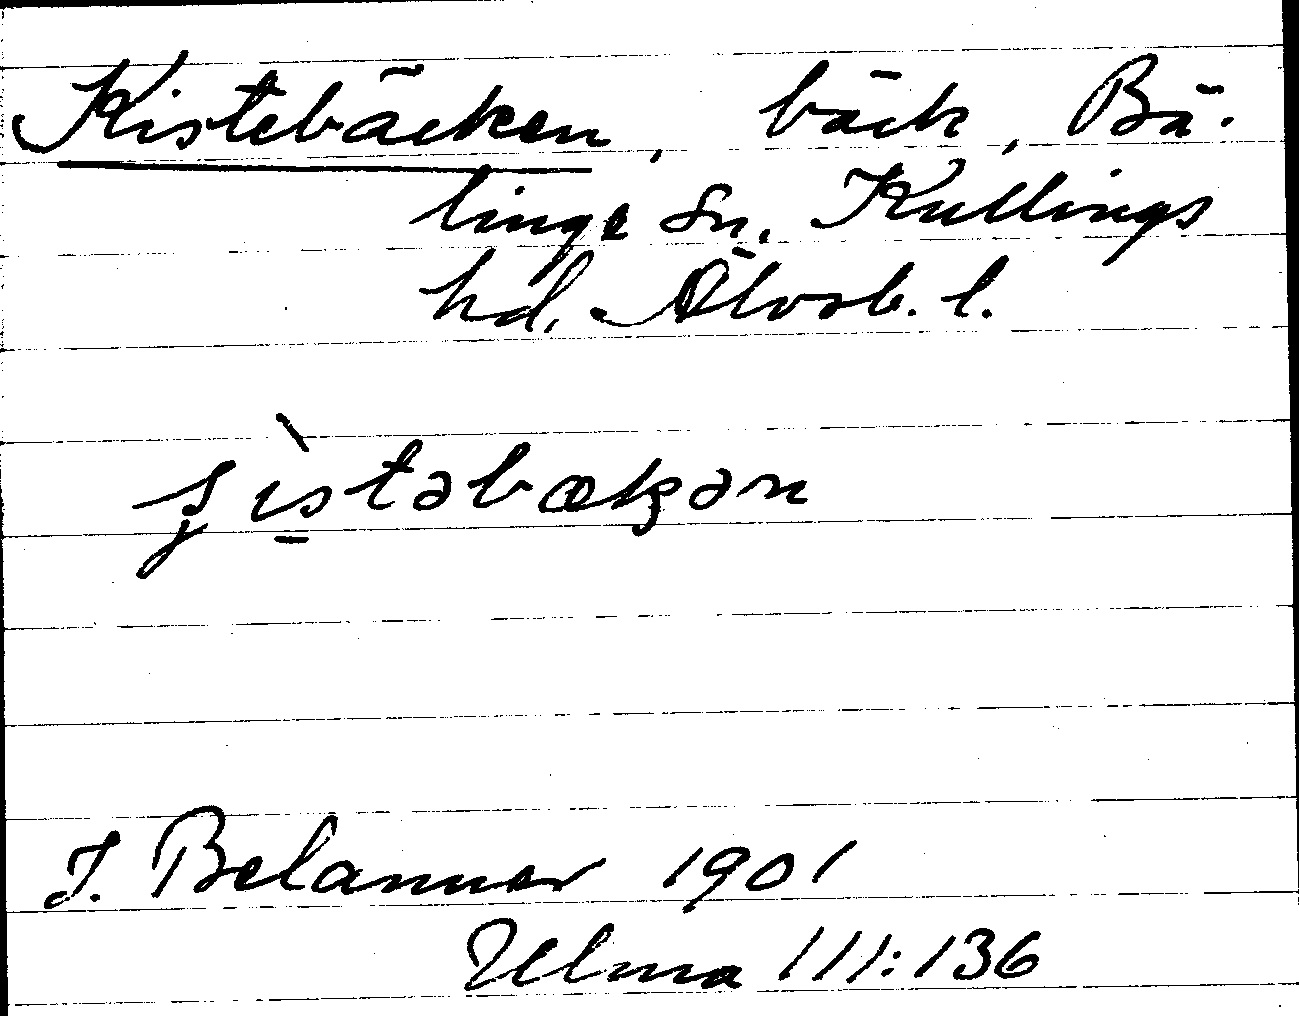 Kistebäcken, bäck, Bä-
linge sn. Kullings
hd. Älvsb. l.
ʂìstəbækən
J. Belanner 1901
Ulma 111:136